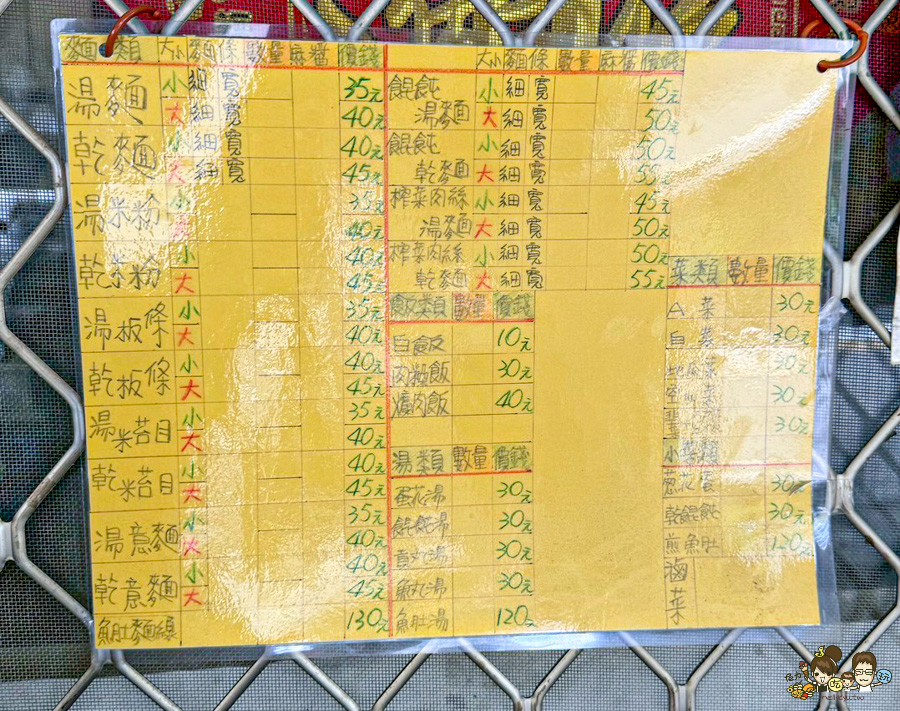 麵類 大小 麵條 數量 麻醬 價錢
湯麵 小 細 寬 35元
大 細 寬 40元
乾麵 小 細 寬 40元
大 細 寬 45元
湯米粉 小 35元
大 40元
乾米粉 小 40元
大 45元
湯板條 小 35元
大 40元
乾板條 小 40元
大 45元
湯米苔目 小 35元
大 40元
乾米苔目 小 40元
大 45元
湯意麵 小 35元
大 40元
乾意麵 小 40元
大 45元
魚肚麵線 130元
大小 麵條 數量 麻醬 價錢
餛飩湯麵 小 細 寬 45元
大 細 寬 50元
餛飩乾麵 小 細 寬 50元
大 細 寬 55元
榨菜肉絲湯麵 小 細 寬 45元
大 細 寬 50元
榨菜肉絲乾麵 小 細 寬 50元
大 細 寬 55元
飯類 數量 價錢
白飯 10元
肉燥飯 30元
爌肉飯 40元
湯類 數量 價錢
蛋花湯 30元
餛飩湯 30元
貢丸湯 30元
魚丸湯 30元
魚肚湯 120元
菜類 數量 價錢
A菜 30元
白菜 30元
地瓜菜 30元
30元
30元
小菜類
蔥花蛋 30元
乾餛飩 30元
煎魚肚 120元
滷菜